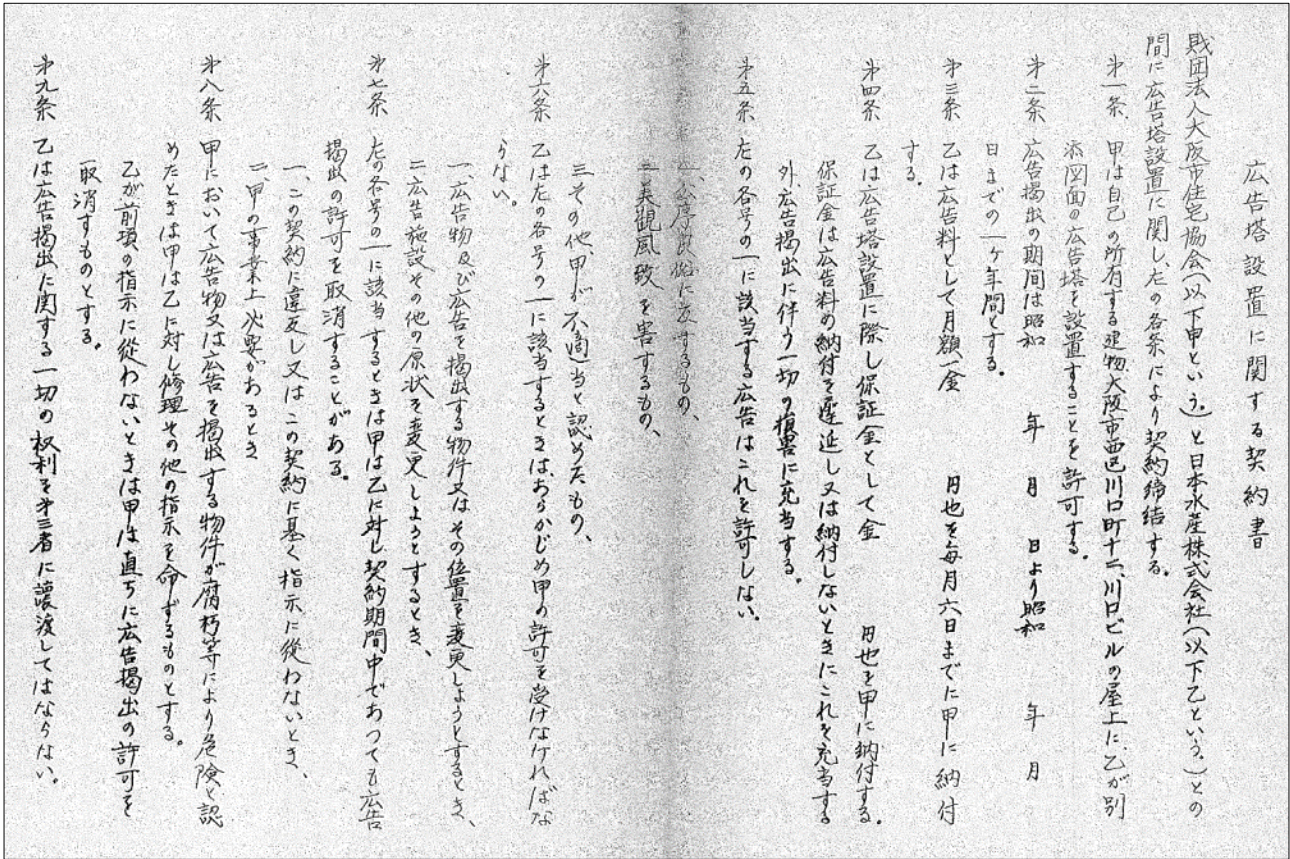 広告塔設置に関する契約書
財団法人大阪市住宅協会(以下甲という。)と日本水産株式会社(以下乙という。)との
間に広告塔設置に関し、左の各条により契約締結する。
第一条 甲は自己の所有する建物大阪市西区川口町十二、川口ビルの屋上に、乙が別
添図面の広告塔を設置することを許可する。
第二条 広告掲出の期間は昭和 年 月 日より昭和 年 月
日までの一ヶ年間とする。
第三条 乙は広告料として月額一金 円也を毎月六日までに甲に納付
する。
第四条 乙は広告塔設置に際し保証金として金 円也を甲に納付する。
保証金は広告料の納付を遅延し又は納付しないときにこれを充当する
外、広告掲出に伴う一切の損害に充当する。
第五条 左の各号の一に該当する広告はこれを許可しない。
一、公序良俗に反するもの、
二 美観風致を害するもの、
三 その他、甲が不適当と認めたもの、
第六条 乙は左の各号の一に該当するときは、あらかじめ甲の許可を受けなければな
らない。
一、広告物及び広告を掲出する物件又はその位置を変更しようとするとき、
二 広告施設その他の原状を変更しようとするとき、
第七条 左の各号の一に該当するときは甲は乙に対し契約期間中であつても広告
掲出の許可を取消することがある。
一、この契約に違反し又はこの契約に基く指示に従わないとき、
二、甲の事業上必要があるとき
第八条 甲において広告物又は広告を掲出する物件が腐朽等により危険と認
めたときは甲は乙に対し修理その他の指示を命ずるものとする。
乙が前項の指示に従わないときは甲は直ちに広告掲出の許可を
取消すものとする。
第九条 乙は広告掲出に関する一切の权利を第三者に譲渡してはならない。